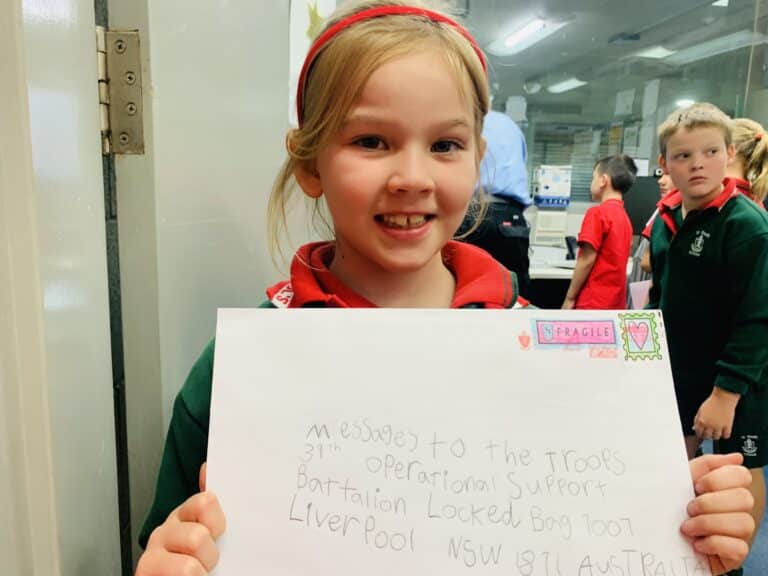 FRAGILE
Messages to the Troops
39th Operational Support
Battalion Locked Bag 7007
Liverpool NSW 1871 AUSTRALIA